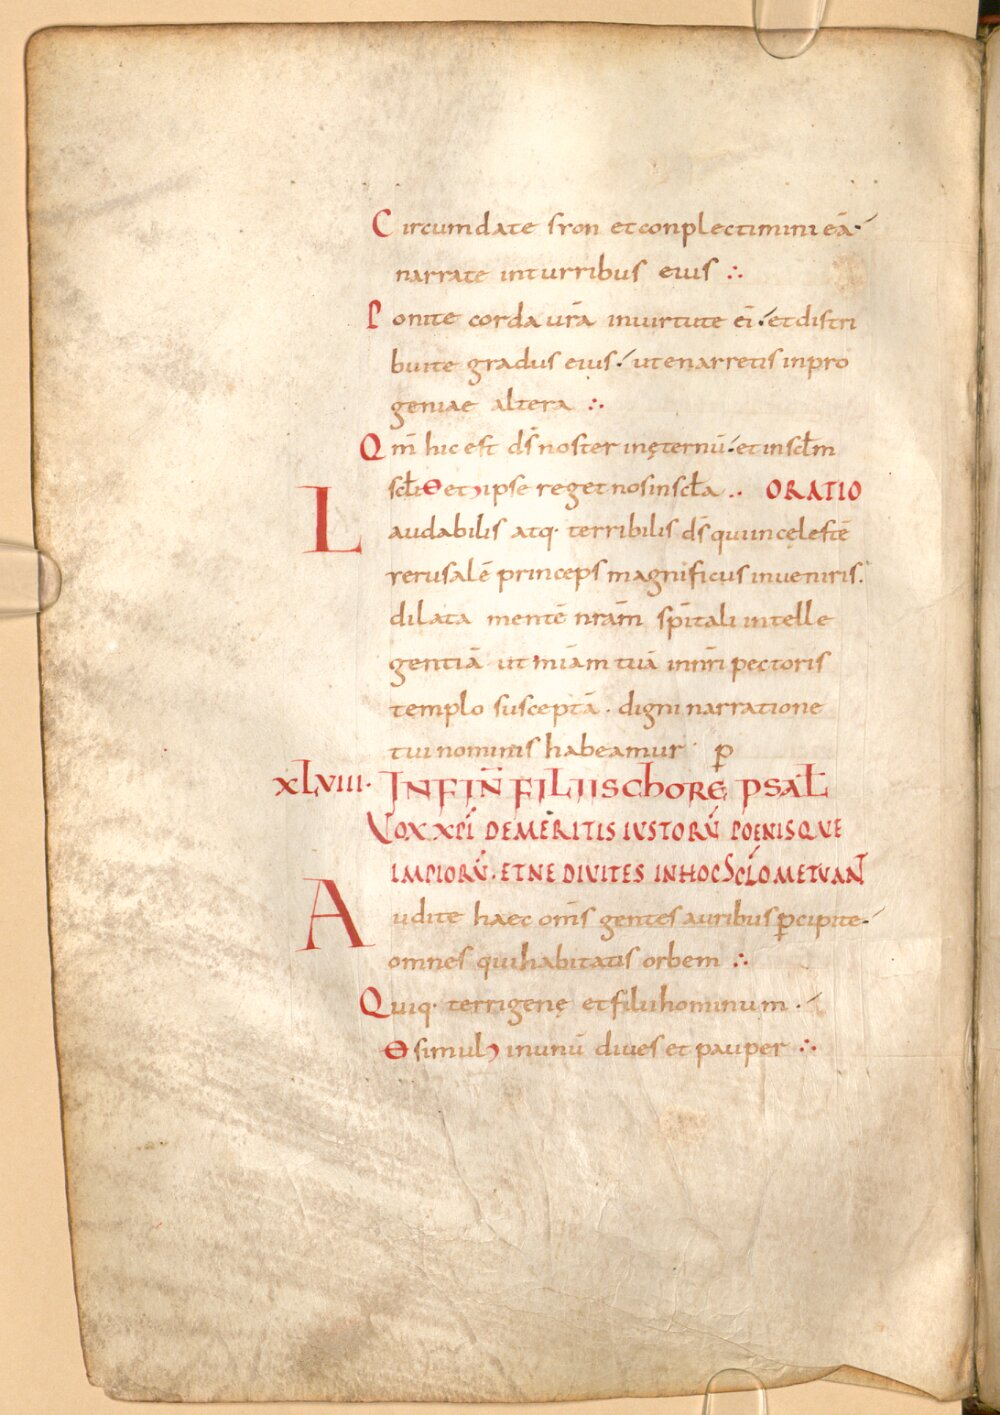 Circumdate sion et conplectimini eā·
narrate in turribus eius ∴
Ponite corda ur̄a in uirtute ei ·/ et distri
buite gradus eius ·/ ut enarretis in pro
geniae altera ∴
Qm̄ hic est d̄s noster in ęternū ·/ et in scl̄m
scl̄i ꝋ et ипse reget nos in scl̄a ·· ORATIO
Laudabilis atq· terribilis d̄s qui in cęlestē
ierusalē princeps magnificus inueniris·
dilata mentē nr̄am sp̄itali intelle
gentiā ut miām tuā in nr̄i pectoris
templo susceptā · digni narratione
tui nominis habeamur · p̄
XLVIII· IN FIN̄ FILIIS CHORĘ PSAL̄
VOX XPĪ DE MERITIS IVSTORŪ POENISQVE
IMPIORŪ · ET NE DIVITES IN HOC SCL̄O METVANT
Audite haec om̄s gentes auribus p̄cipite ·/
omnes qui habitatis orbem ∴
Quiq· terrigenę et filii hominum ·/
ꝋ simul in unū diues et pauper ∴